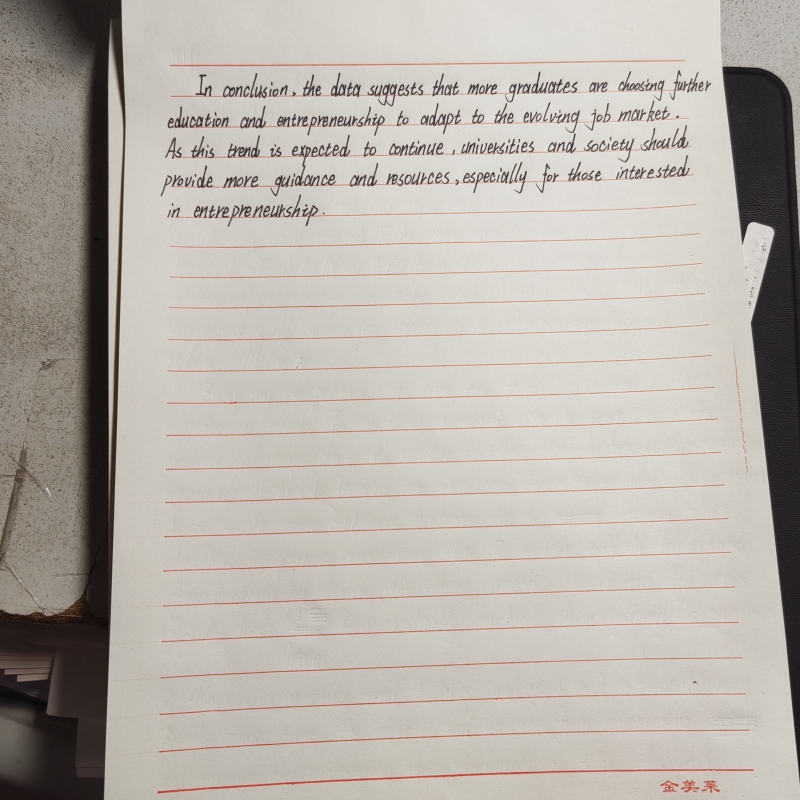 In conclusion, the data suggests that more graduates are choosing further
education and entrepreneurship to adapt to the evolving job market.
As this trend is expected to continue, universities and society should
provide more guidance and resources, especially for those interested
in entrepreneurship.
金美莱